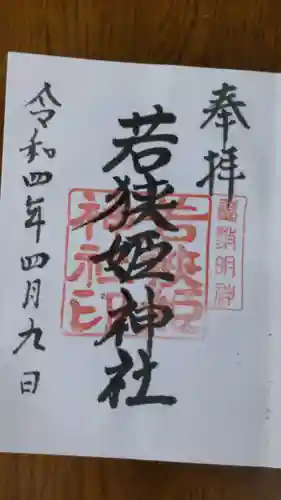 奉拝
若狭姫神社
令和四年四月九日
若狭姫
神社印